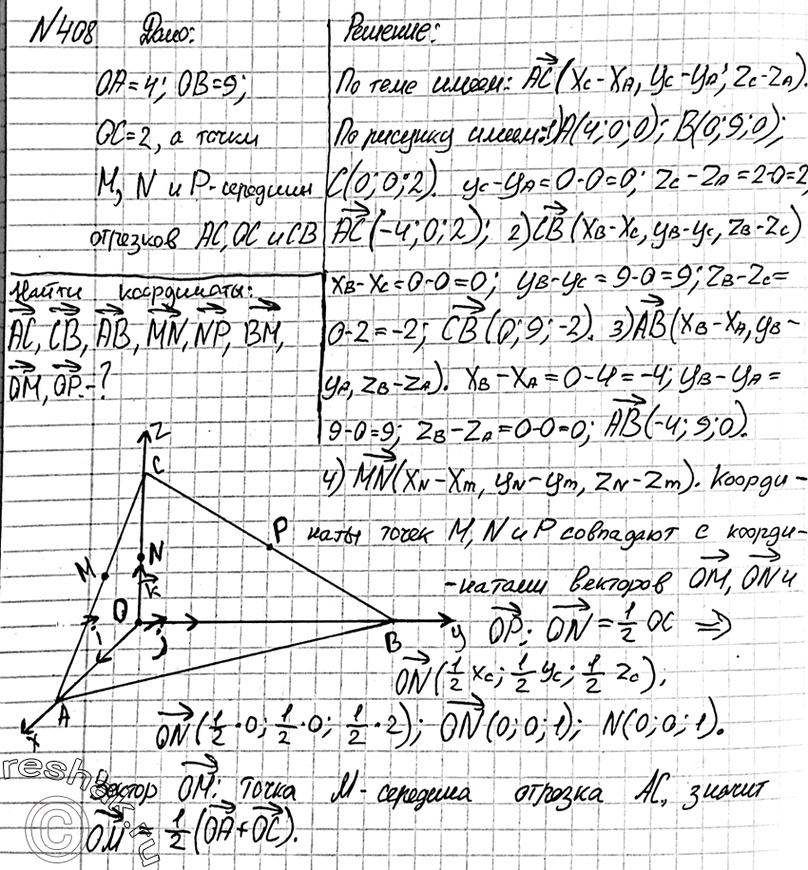 №408 Дано:
OA=4; OB=9;
OC=2, а точки
M, N и P-середины
отрезков AC, OC и CB
Найти координаты:
AC, CB, AB, MN, NP, BM,
OM, OP.-?
Решение:
По теме имеем: AC(xc-xA, yc-yA; zc-zA).
По рисунку имеем: 1)A(4;0;0); B(0;9;0);
C(0;0;2). yc-yA=0-0=0; zc-zA=2-0=2,
AC(-4;0;2); 2)CB(xB-xc, yB-yc, zB-zc)
xB-xc=0-0=0; yB-yc=9-0=9; zB-zc=
0-2=-2; CB(0;9;-2). 3)AB(xB-xA, yB-
yA, zB-zA). xB-xA=0-4=-4; yB-yA=
9-0=9; zB-zA=0-0=0; AB(-4;9;0).
4) MN(xN-xm, yN-ym, zN-zm). Коорди-
наты точек M, N и P совпадают с коорди-
-натами векторов OM, ON и
OP; ON=1/2 OC ⇒
ON(1/2 xc; 1/2 yc; 1/2 zc);
ON(1/2·0; 1/2·0; 1/2·2); ON(0;0;1); N(0;0;1).
Вектор OM: точка M-середина отрезка AC, значит
OM = 1/2(OA+OC).
z
C
P
N
M
k
O
i
j
B
y
A
x
reshak.ru
©